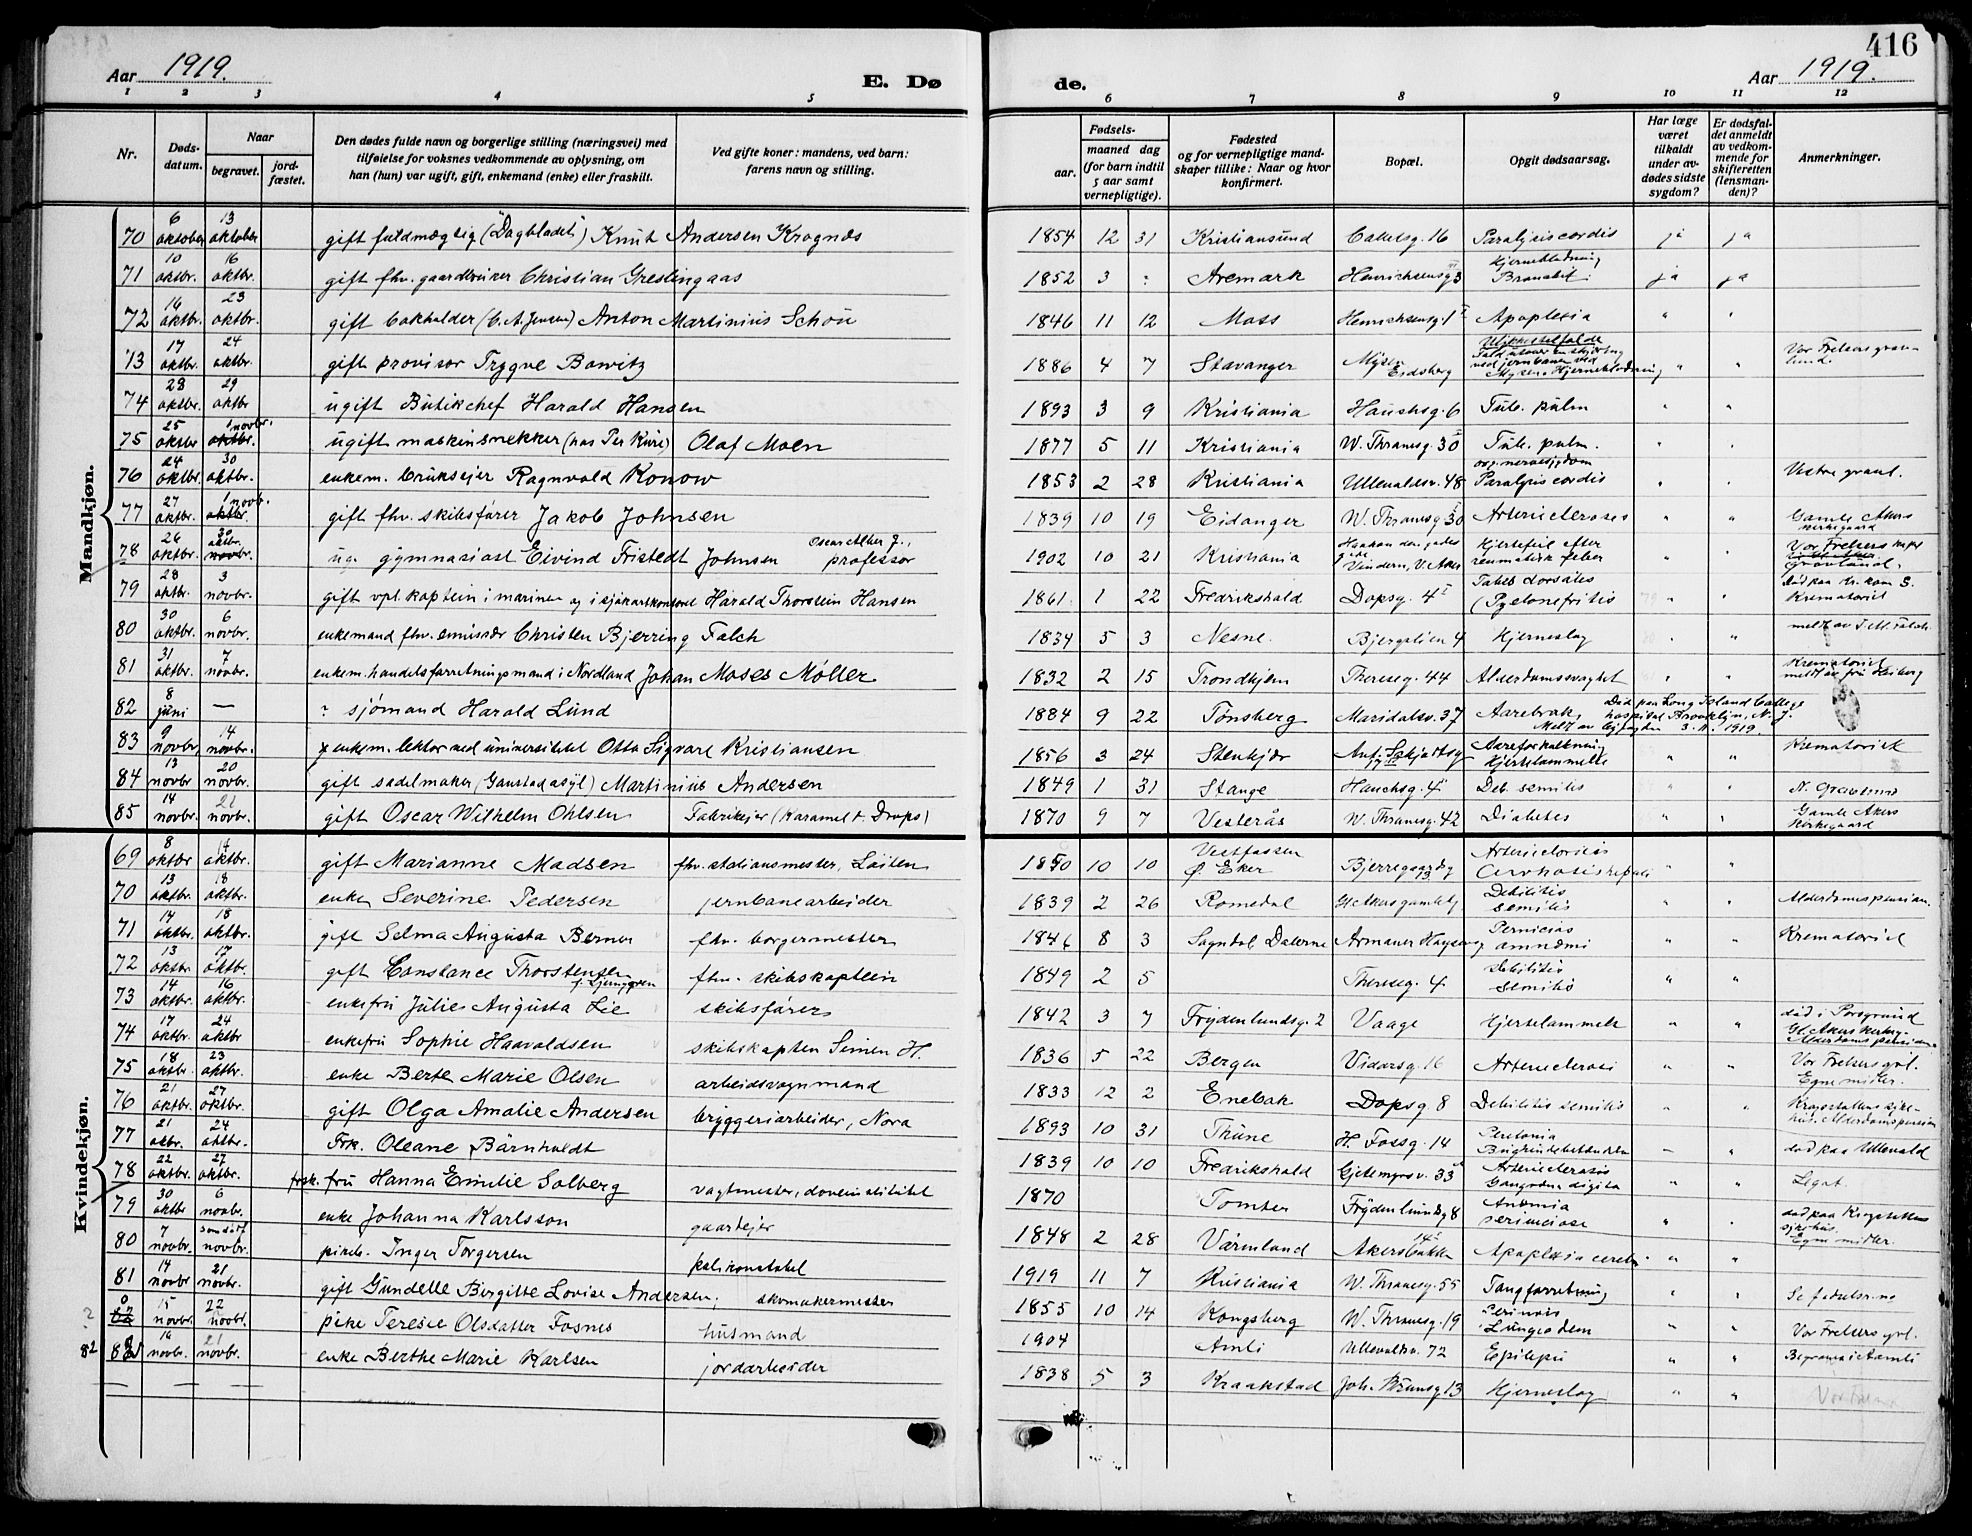 416
Aar 1919.
E. Dø
de.
Aar 1919.
1 2 3 4 5 6 7 8 9 10 11 12
Nr.
Døds-
datum.
Naar
begravet.
jord-
fæstet.
Den dødes fulde navn og borgerlige stilling (næringsvei) med
tilføielse for voksnes vedkommende av oplysning, om
han (hun) var ugift, gift, enkemand (enke) eller fraskilt.
Ved gifte koner: mandens, ved barn:
farens navn og stilling.
Fødsels-
aar.
maaned dag
(for barn indtil
5 aar samt
vernepligtige).
Fødested
og for vernepligtige mand-
skaper tillike: Naar og hvor
konfirmert.
Bopæl.
Opgit dødsaarsag.
Har læge
været
tilkaldt
under av-
dødes sidste
sygdom?
Er dødsfal-
det anmeldt
av vedkom-
mende for
skifteretten
(lensman-
den)?
Anmerkninger.
Mandkjøn.
70 6 oktober 13 oktober gift fuldmægtig (Dagbladet) Knut Andersen Krognæs 1854 12 31 Kristiansund Colletsg. 16 Paralysis cordis ja ja
71 10 oktbr. 16 oktbr. gift fhv. gaardbruker Christian Greslingaas 1852 3 : Aremark Henrichsensg 3 Hjerneblødning ja ja
72 16 oktbr. 23 oktbr. gift bokholder Anton Martinius Schou 1846 11 12 Moss Henrichsensg. 1 Apoplexia " "
73 17 oktbr. 24 oktbr. gift provisor Trygve Bowitz 1886 4 7 Stavanger Mysen Eidsberg Ulykkestilfælde ved jernbanen ved Mysen. Hjerneblødning " " Vor Frelsers grav-
lund.
74 28 oktbr. 29 oktbr ugift Butikchef Harald Hansen 1893 3 9 Kristiania Hauchsg. 6 Tub. pulm " "
75 25 oktbr 1 novbr. ugift maskinsnekker (hos Per Kure) Olaf Moen 1877 5 11 Kristiania W. Thranesg. 30 Tub. pulm. " "
76 24 oktbr. 30 oktbr. enkem. bruksejer Ragnvald Konow 1853 2 28 Kristiania Ullevaldsv. 48 og nervesygdom Paralysis cordis " " Vestre gravl.
77 27 oktbr. 1 novb. gift fhv. skibsfører Jakob Johnsen 1839 10 19 Eidanger W. Thranesg 30 Arterieclerosis " " Gamle Akers
kirkegaard
78 26 oktbr. 30 oktbr. ug. gymnasiast Eivind Fristedt Johnsen Oscar Alber J., professor 1902 10 21 Kristiania Vindern, V. Aker Hjertefeil efter reumatisk feber " " Vor Frelsers
gravlund.
79 28 oktbr. 3 novbr. gift vpl. kaptein i marinen og i sjøkartkontoret Harald Thorstein Hansen 1861 1 22 Fredrikshald Dopsg. 4 Tabes dorsales (Pyelonefritis " " Krematoriet
80 30 oktbr. 6 novbr. enkemand fhv. emissær Christen Bjerring Falch 1834 5 3 Nesne. Bjergslien 4 Hjerneslag " "
81 31 oktbr. 7 novbr. enkem. handelsforretningsmand i Nordland Johan Moses Møller 1832 2 15 Trondhjem Theresesg. 44 Alderdomssvaghet " " Krematoriet
meldt av fru Heiberg
82 8 juni — ? sjømand Harald Lund 1884 9 22 Tønsberg Maridalsv. 37 Aarebrok, Død paa Long Island College
hospital Brooklyn, N. J.
Meldt av byfogden 3.11.1919.
83 9 novbr. 14 novbr. enkem. lektor ved universitetet Otto Sigvart Kristiansen 1856 3 24 Stenkjær Aareforkalkning Hjertelammelse " " Krematoriet
84 13 novbr. 20 novbr. gift sadelmaker (Gaustad asyl) Martinius Andersen 1849 1 31 Stange Hauchsg. 4 Deb. senilis " " N. Gravlund
85 14 novbr. 21 novbr. gift Oscar Wilhelm Ohlsen Fabrikejer (Karamel & Drops) 1870 9 7 Vesterås W. Thranesg. 42 Diabetes " " Gamle Akers
kirkegaard
Kvindekjøn.
69 8 oktbr 14 oktbr. gift Marianne Madsen fhv. stationsmester, Løiten 1850 10 10 Vestfossen Ø. Eker Bjerregaardsg Arterieclorosis Cirrhosis hepati " "
70 13 oktbr. 18 oktbr. enke Severine Pedersen jernbanearbeider 1839 2 26 Romedal Debilitis senilis " " Alderdomspension.
71 14 oktbr. 18 oktbr. gift Selma Augusta Berner fhv. borgermester 1846 8 3 Sogndal Dalerne Armauer Hansensg Pernicios anæmi " " Krematoriet
72 13 oktbr. 17 oktbr. gift Constance Thorstensen f. Ljunggren fhv. skibskaptein 1849 2 5 Theresesg. 4 Debilitis senilis " "
73 14 oktbr. 16 oktbr. enkefru Julie Augusta Lie skibsfører 1842 3 7 Frydenlundsg. 2 Vaage Hjertelammelse " " død i Porsgrund
74 17 oktbr. 24 oktbr enkefru Sophie Haavaldsen skibskaptein Simen H. 1836 5 22 Bergen Vidarsg. 16 Arterieclerosi " " Vor Frelsers gvl.
Egne midler.
75 18 oktbr. 23 oktbr. enke Berte Marie Olsen arbeidsvognmand 1833 12 2 Enebak Dopsg 8 Debilitis senilis " "
76 21 oktbr. 27 oktbr. gift Olga Amalie Andersen bryggeriarbeider, Nora 1893 10 31 Thune H. Fossg. 14 — " død paa Ullevål
77 21 oktbr. 24 oktbr. Frk. Oleane Bårnholdt 1839 10 10 Fredrikshald Gjetemyrsv. 33 Arterieclerosis " " Legat.
78 22 oktbr. 27 oktbr. frsk. fru Hanna Emilie Solberg vagtmester, 1870 Tomter Frydenlundsg 8 Anæmia " "
79 30 oktbr 6 novbr. enke Johanna Karlsson gaardejer 1848 2 28 Värmland Akersbakken Apoplexia cerebri " "
80 7 novbr. samdat novbr. pikeb. Inger Torgersen polikonstabel 1919 11 7 Kristiania W. Thranesg. 55 Tangforretning " " Se fødselsr. no
81 14 novbr 21 novbr. gift Gundelle Birgitte Lovise Andersen, skomakermester 1855 10 14 Kongsberg W. Thranesg. 19 Lungeødem " " Vor Frelsers gvl.
? 82 15 novbr. 22 novbr. pike Teresie Olsdatter Fosnes husmand 1904 Amli Ullevaldsv. 72 Epilepsi " " Begraves i Aamli
82 19 novbr. 21 novbr. enke Berthe Marie Karlsen jordarbeider 1838 5 3 Kraakstad Joh. Brunsg. 13 Hjerneslag " "